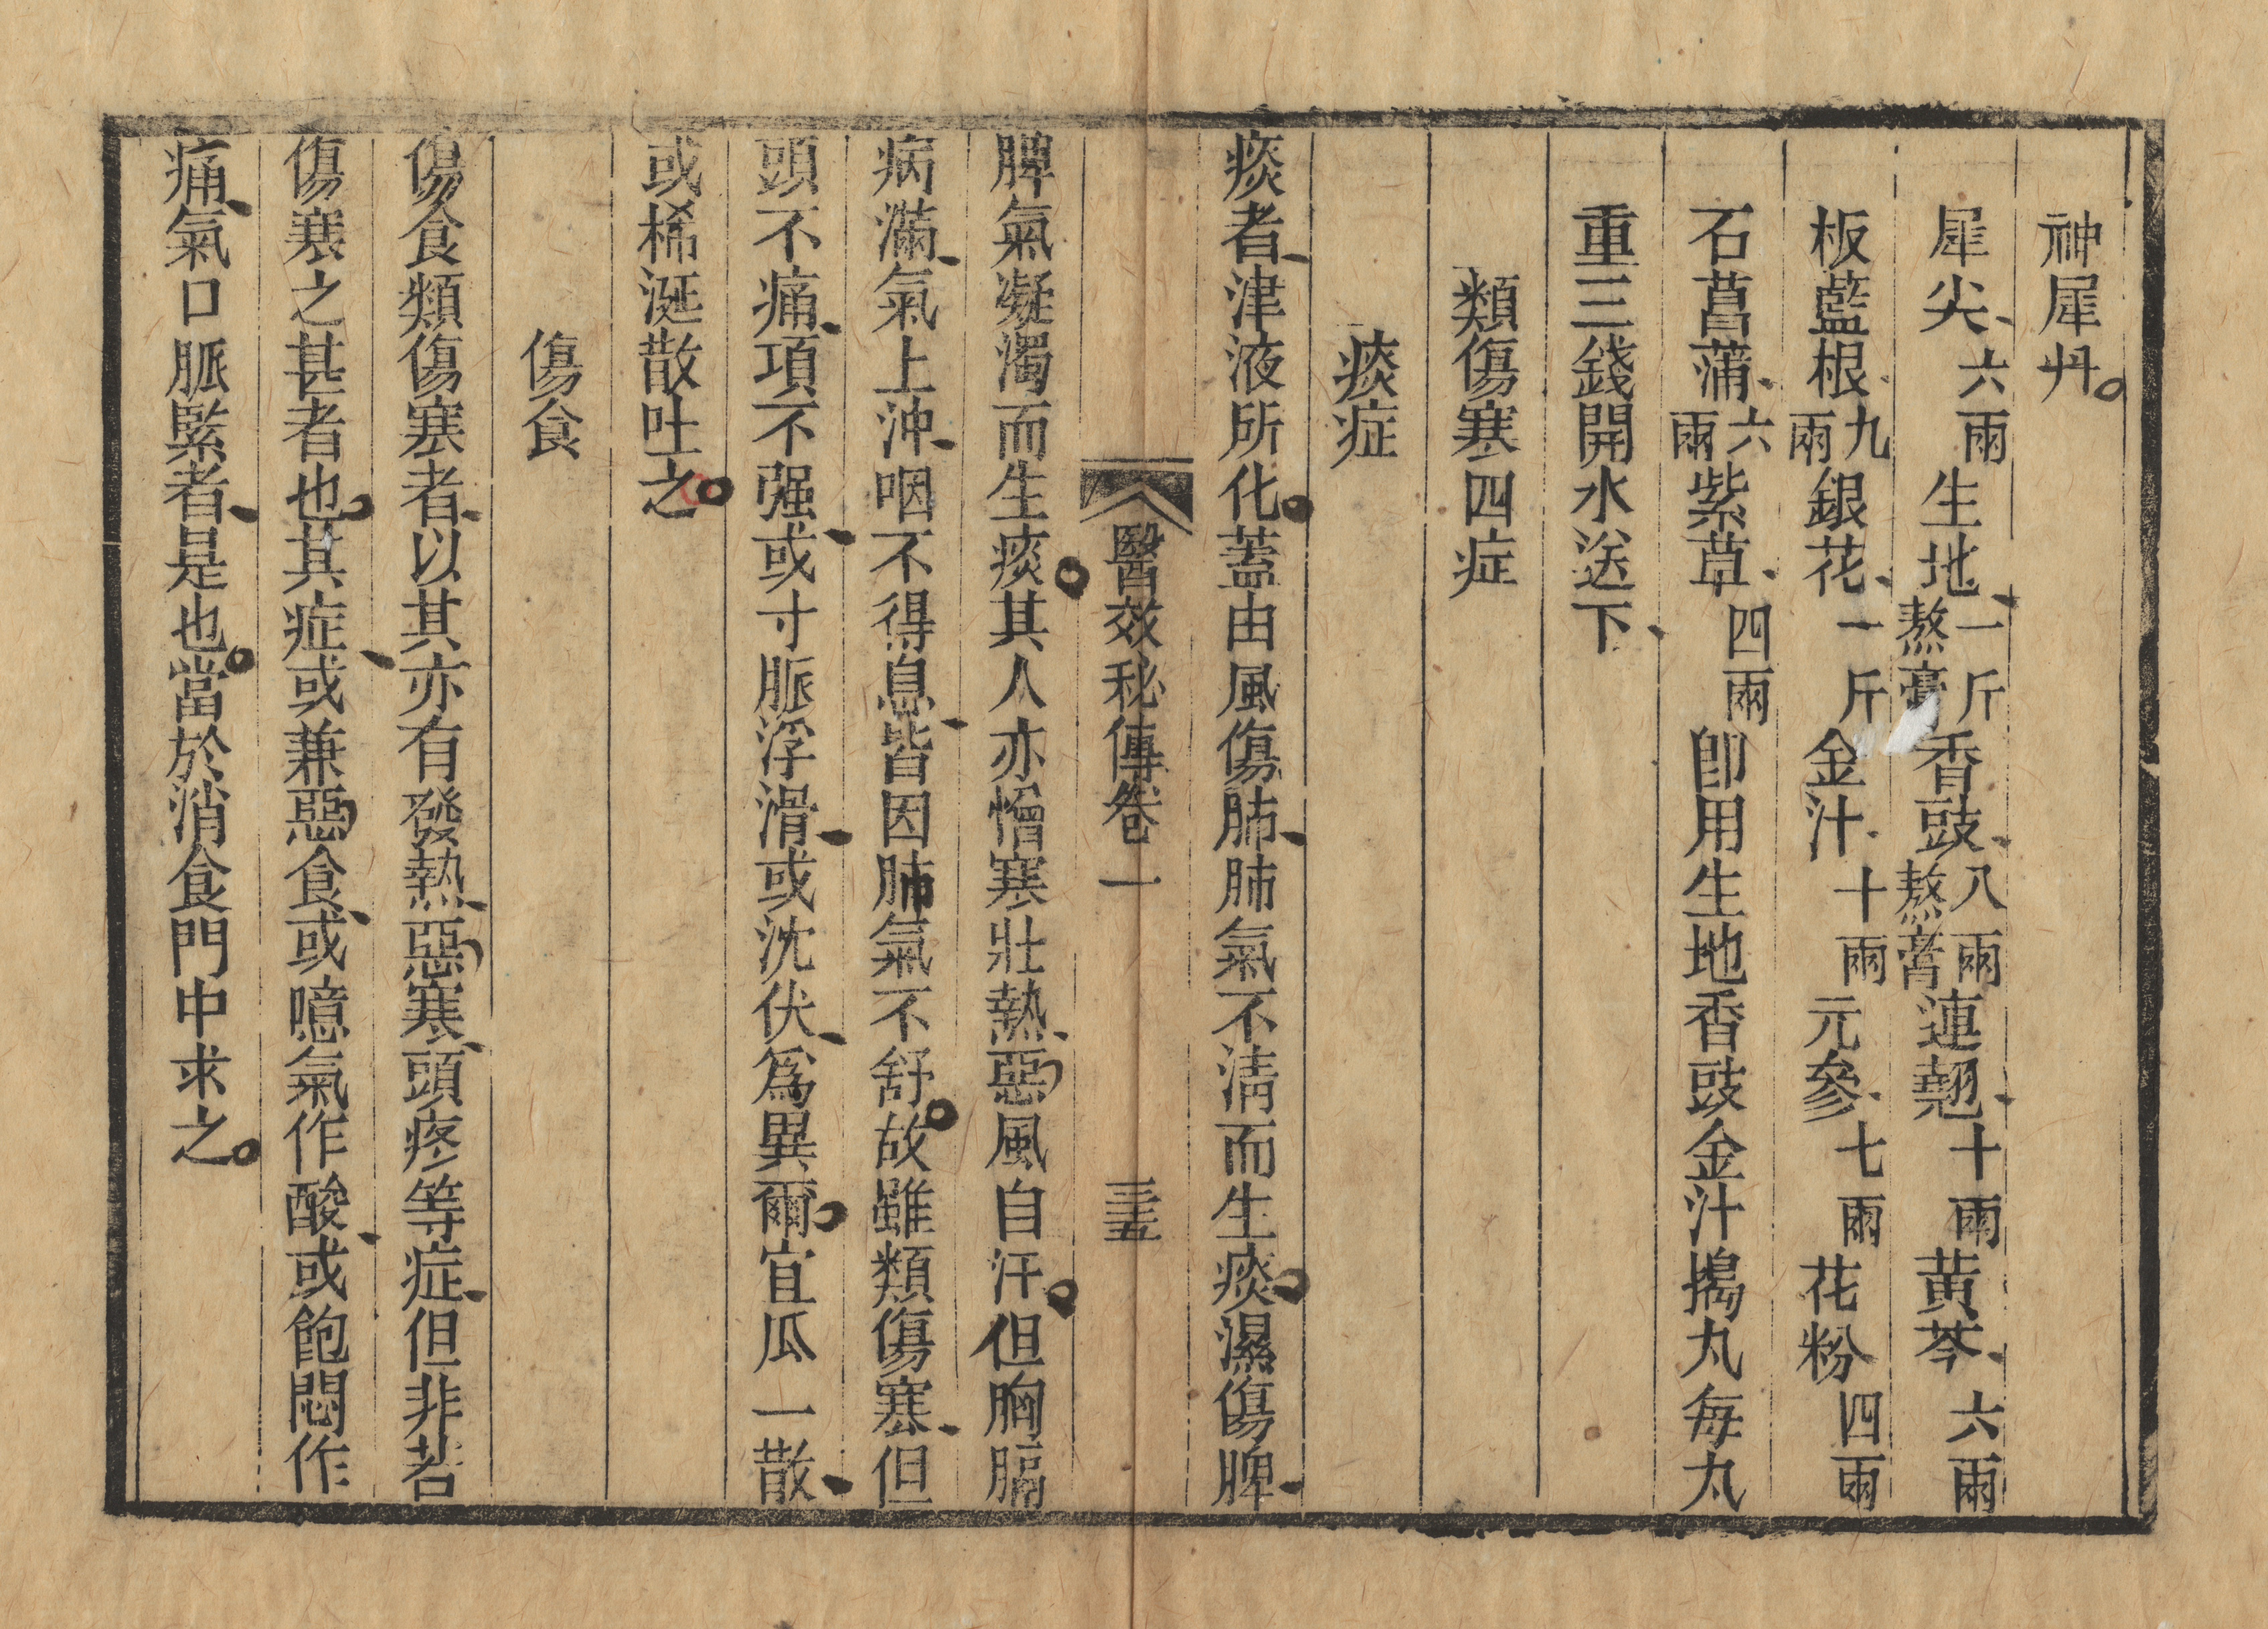 神犀丹
犀尖六兩生地一斤熬膏香豉八兩熬膏連翹十兩黃芩六兩
板藍根九兩銀花一斤金汁十兩元參七兩花粉四兩
石菖蒲六兩紫草四兩卽用生地香豉金汁搗丸每丸
重三錢開水送下
類傷寒四症
痰症
痰者津液所化蓋由風傷肺肺氣不清而生痰濕傷脾
醫效秘傳卷一 三十五
脾氣凝濁而生痰其人亦憎寒壯熱惡風自汗但胸膈
病滿氣上沖咽不得息皆因肺氣不舒故雖類傷寒但
頭不痛項不强或寸脈浮滑或沈伏爲異爾宜瓜一散
或稀涎散吐之
傷食
傷食類傷寒者以其亦有發熱惡寒頭疼等症但非若
傷寒之甚者也其症或兼惡食或噫氣作酸或飽悶作
痛氣口脈緊者是也當於消食門中求之